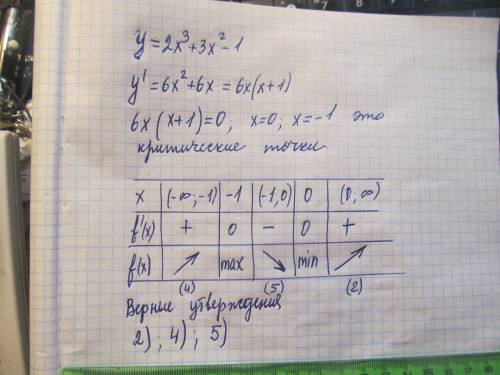 y = 2x³+3x²-1
y' = 6x²+6x = 6x(x+1)
6x(x+1)=0; x=0; x=-1 это
критические точки
x (-∞;-1) -1 (-1,0) 0 (0,∞)
f'(x) + 0 - 0 +
f(x) ↗ max ↘ min ↗
(4) (5) (2)
Верные утверждения
2); 4); 5)